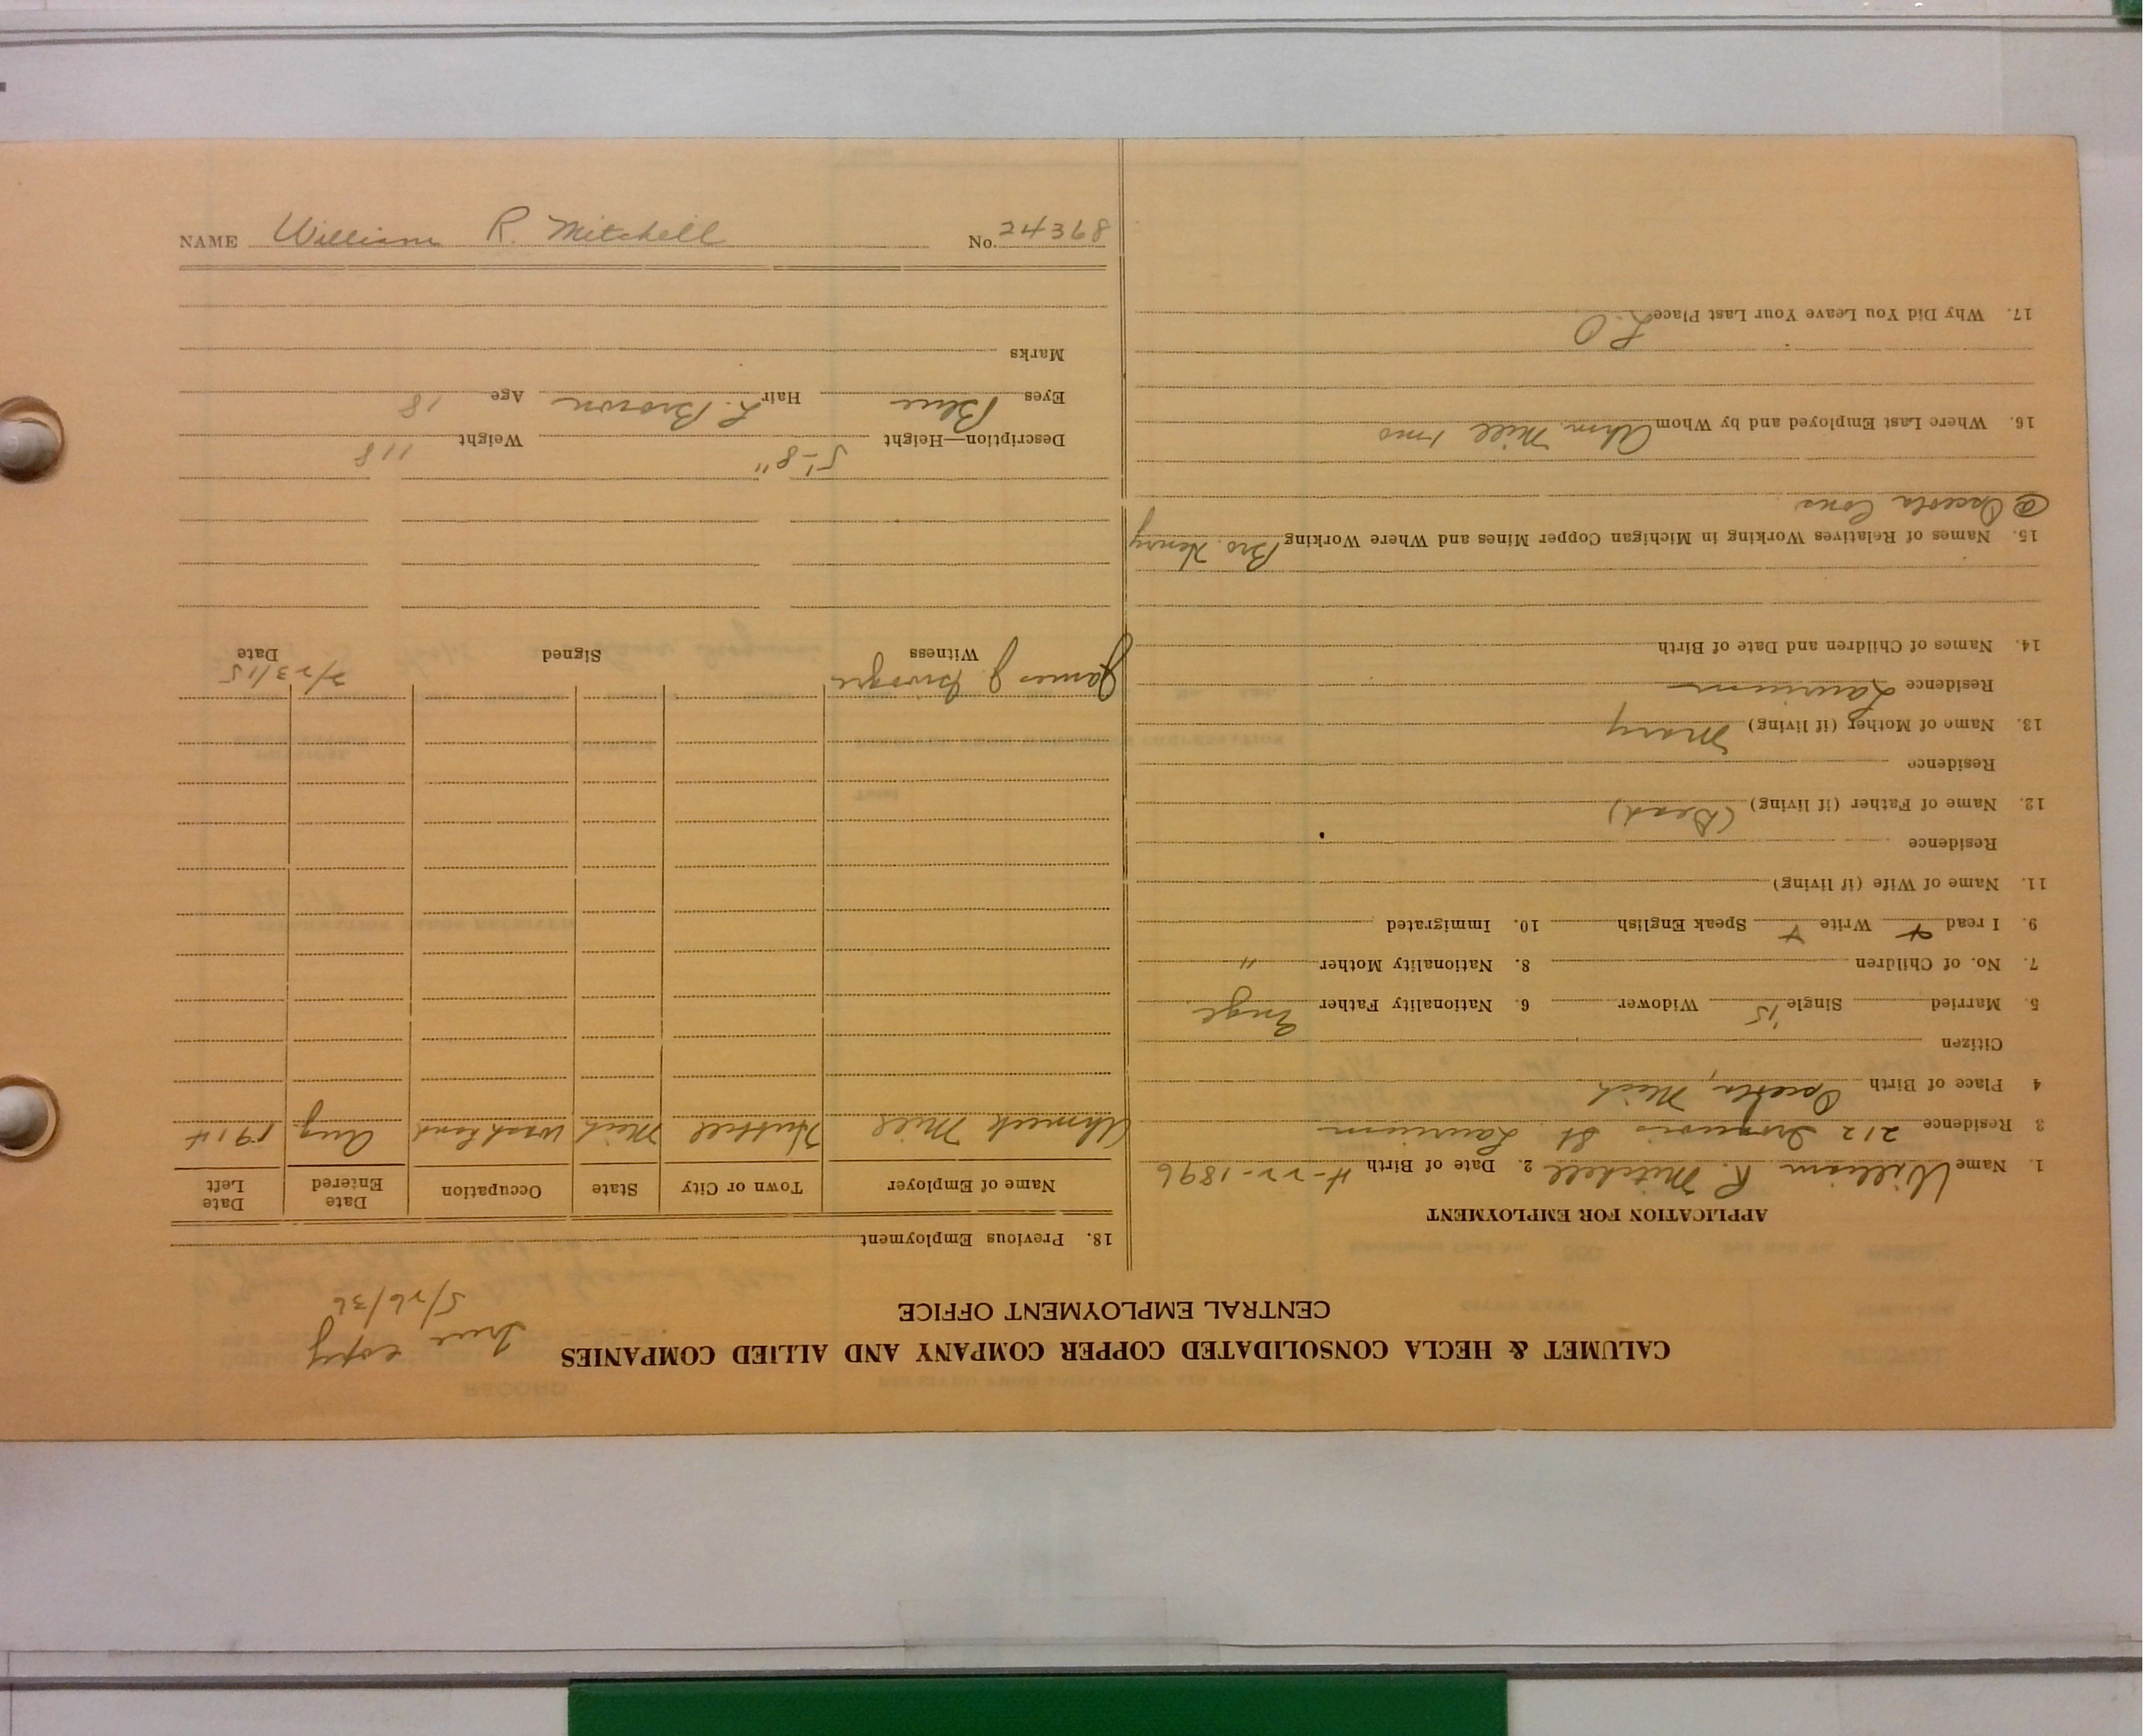 CALUMET & HECLA CONSOLIDATED COPPER COMPANY AND ALLIED COMPANIES
CENTRAL EMPLOYMENT OFFICE
True copy
5/26/36
APPLICATION FOR EMPLOYMENT
1. Name William R. Mitchell 2. Date of Birth 4-22-1896
3 Residence 212 Iroquois St Laurium
4 Place of Birth Osceola, Mich
Citizen
5. Married Single '15 Widower 6. Nationality Father Engl
7. No. of Children 8. Nationality Mother "
9. I read + Write + Speak English 10. Immigrated
11. Name of Wife (if living)
Residence
12. Name of Father (if living) (Dead)
Residence
13. Name of Mother (if living) Mary
Residence Laurium
14. Names of Children and Date of Birth
15. Names of Relatives Working in Michigan Copper Mines and Where Working Bro. Henry
@ Osceola Cons
16. Where Last Employed and by Whom Ahm. Mill 1 mo
17. Why Did You Leave Your Last Place L.O
18. Previous Employment
Name of Employer Town or City State Occupation Date Entered Date Left
Ahmeek Mill Hubbell Mich Washhand Aug 1914
James J. 2/23/15
Witness Signed Date
Description—Height 5'-8" Weight 118
Eyes Blue Hair L. Brown Age 18
Marks
NAME William R. Mitchell No. 24368